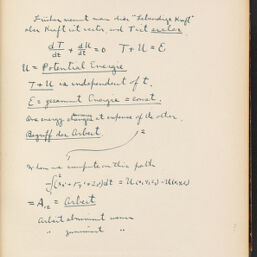 Früher nennt man dies "Lebendige Kraft"
aber Kraft ist vector, und T ist scalar.
dT/dt + dU/dt = 0   T + U = E
U = Potential Energie
T + U is independent of t.
E = gesammt Energie = const.
One energy changes at expense of the other.
Begriff der Arbeit.
2
When we compute on this path
-∫(Xx' + Yy' + Zz')dt = U(x₂y₂z₂) - U(x₁y₁z₁)
= A₁₂ = Arbeit
Arbeit
" "